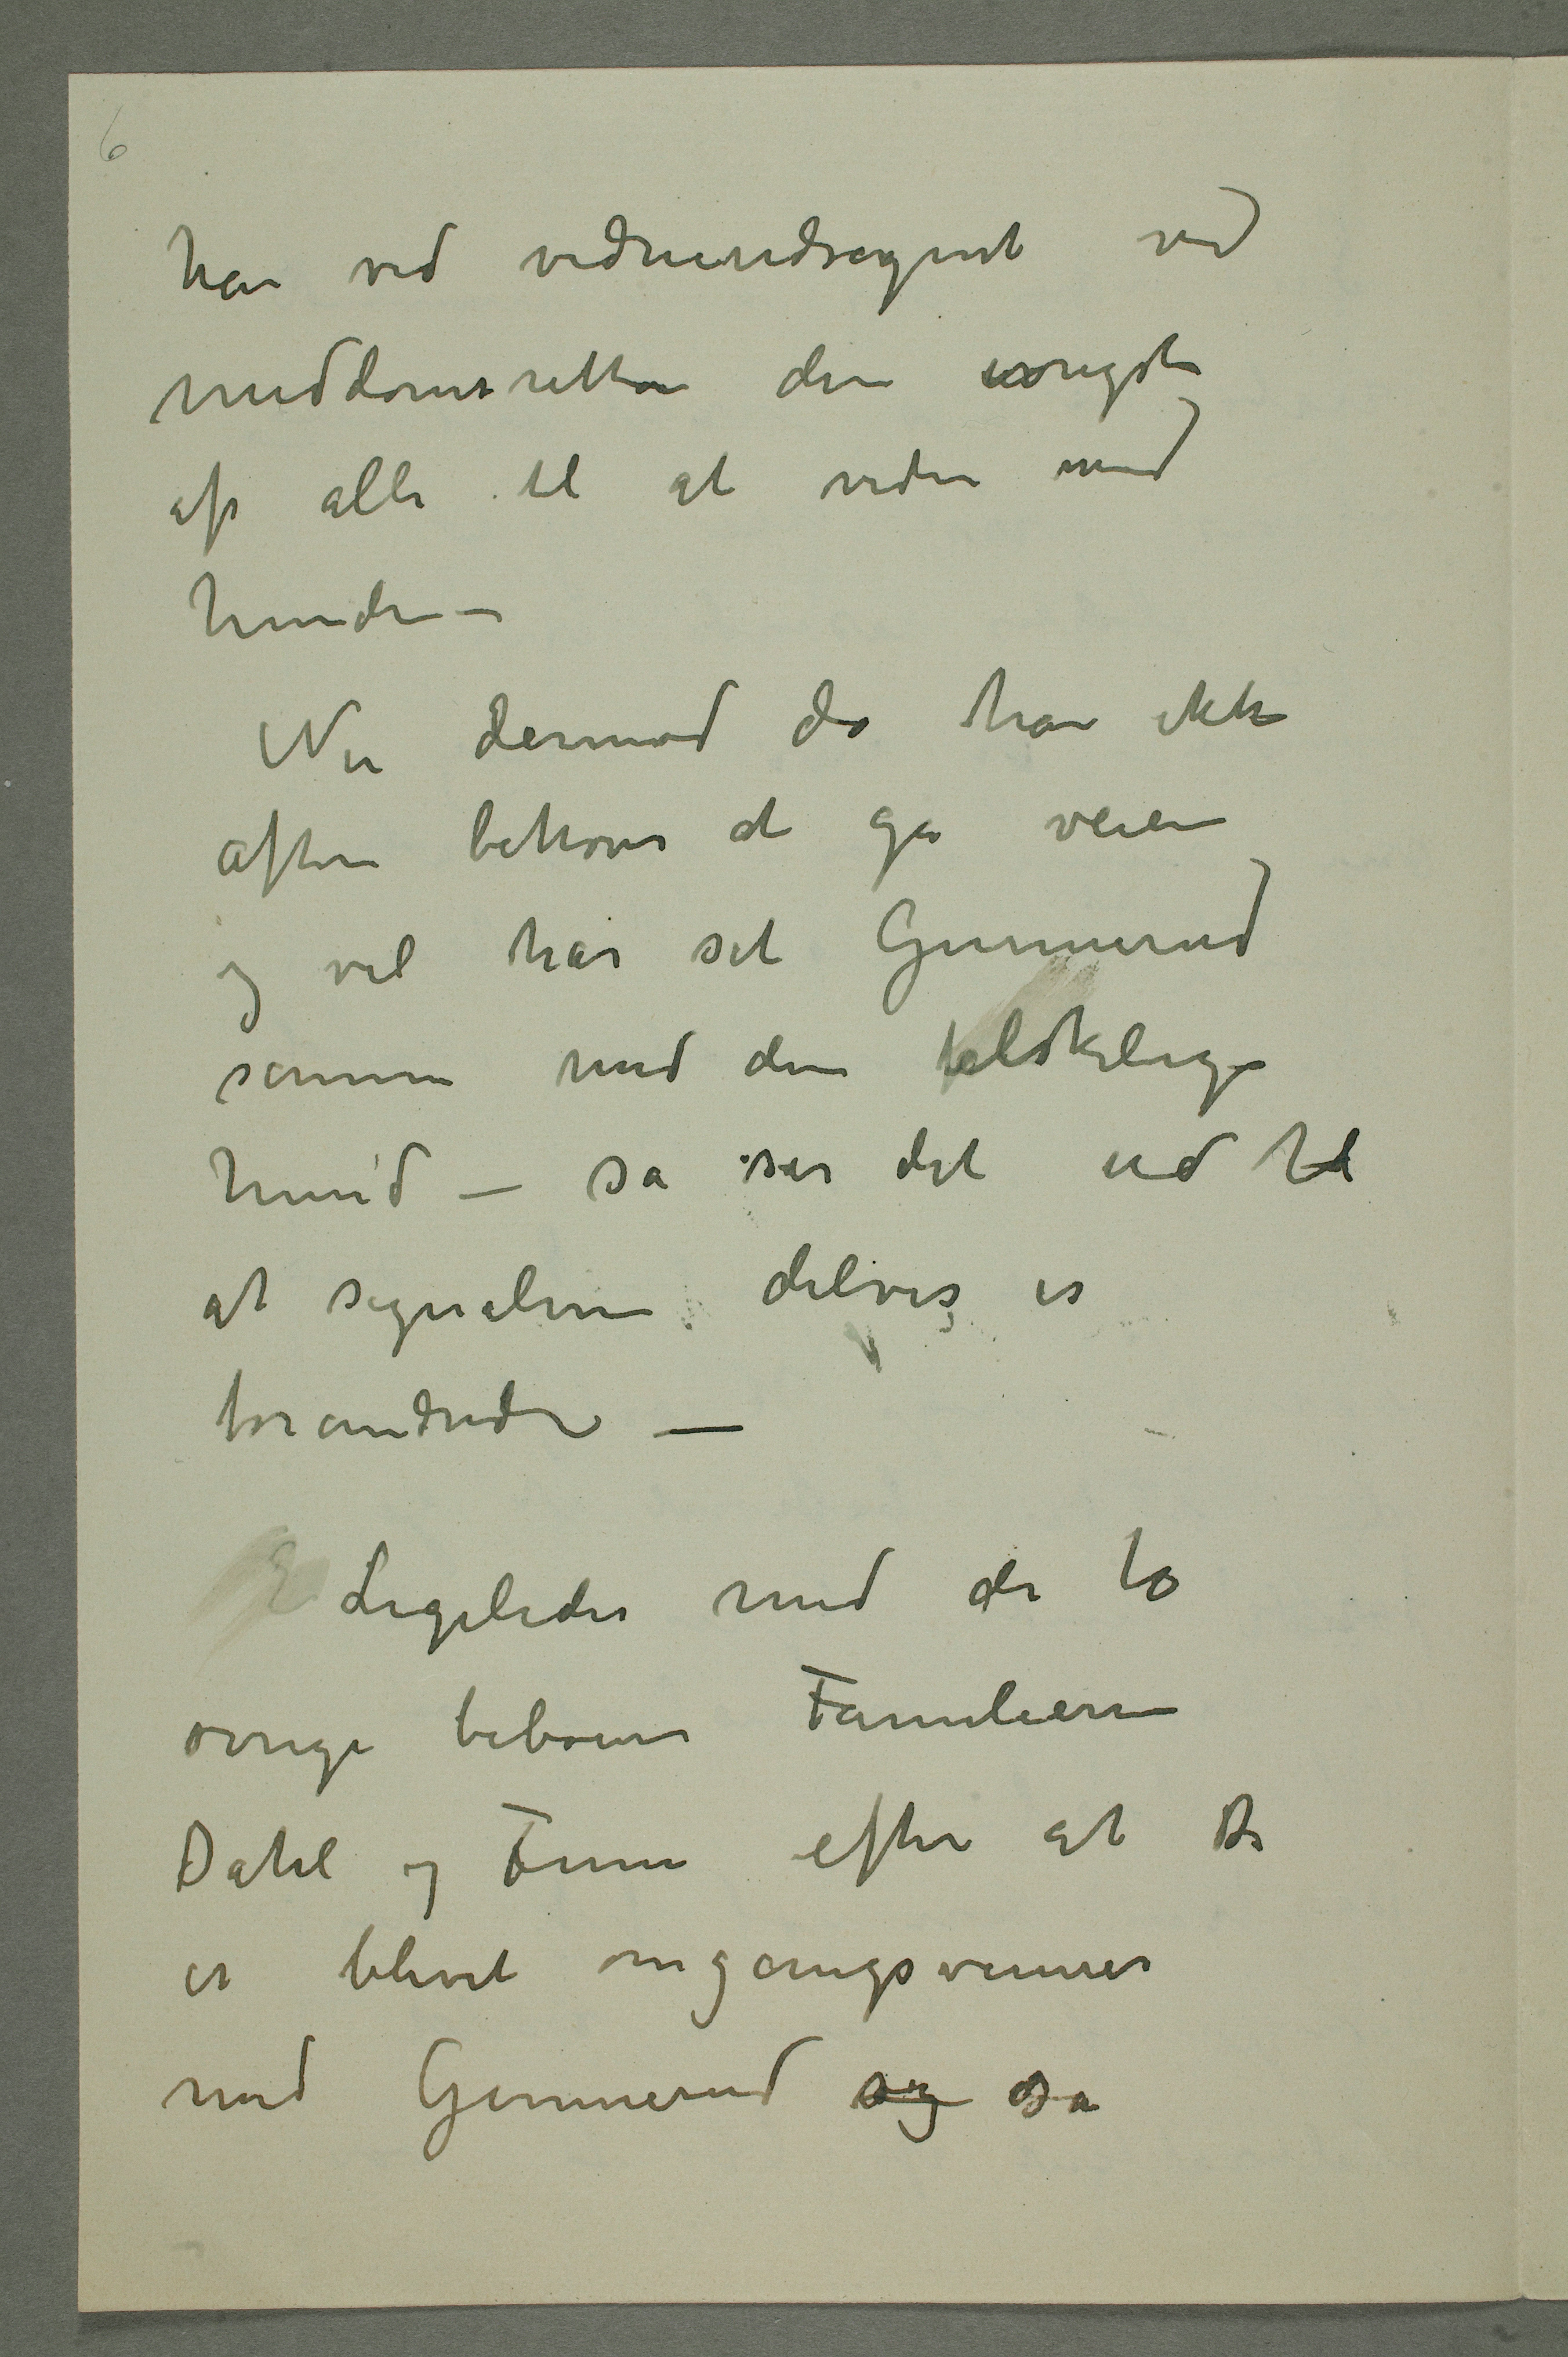 6
han ved vidneudsagnet ved
meddomsretten den ivrigste
af alle til at vidne mod
hunden –
Nu derimod da han ikke
aften behøver at gå veien
og vel har set Gunnerud
sammen med den elskelige
hund – så ser det ud til
at signalerne delvis er
forandrede –
Ligeledes med de to
øvrige beboere Familierne
Dahl og Finne efter at De
er blevet omgangsvenner
med Gunnerud og så